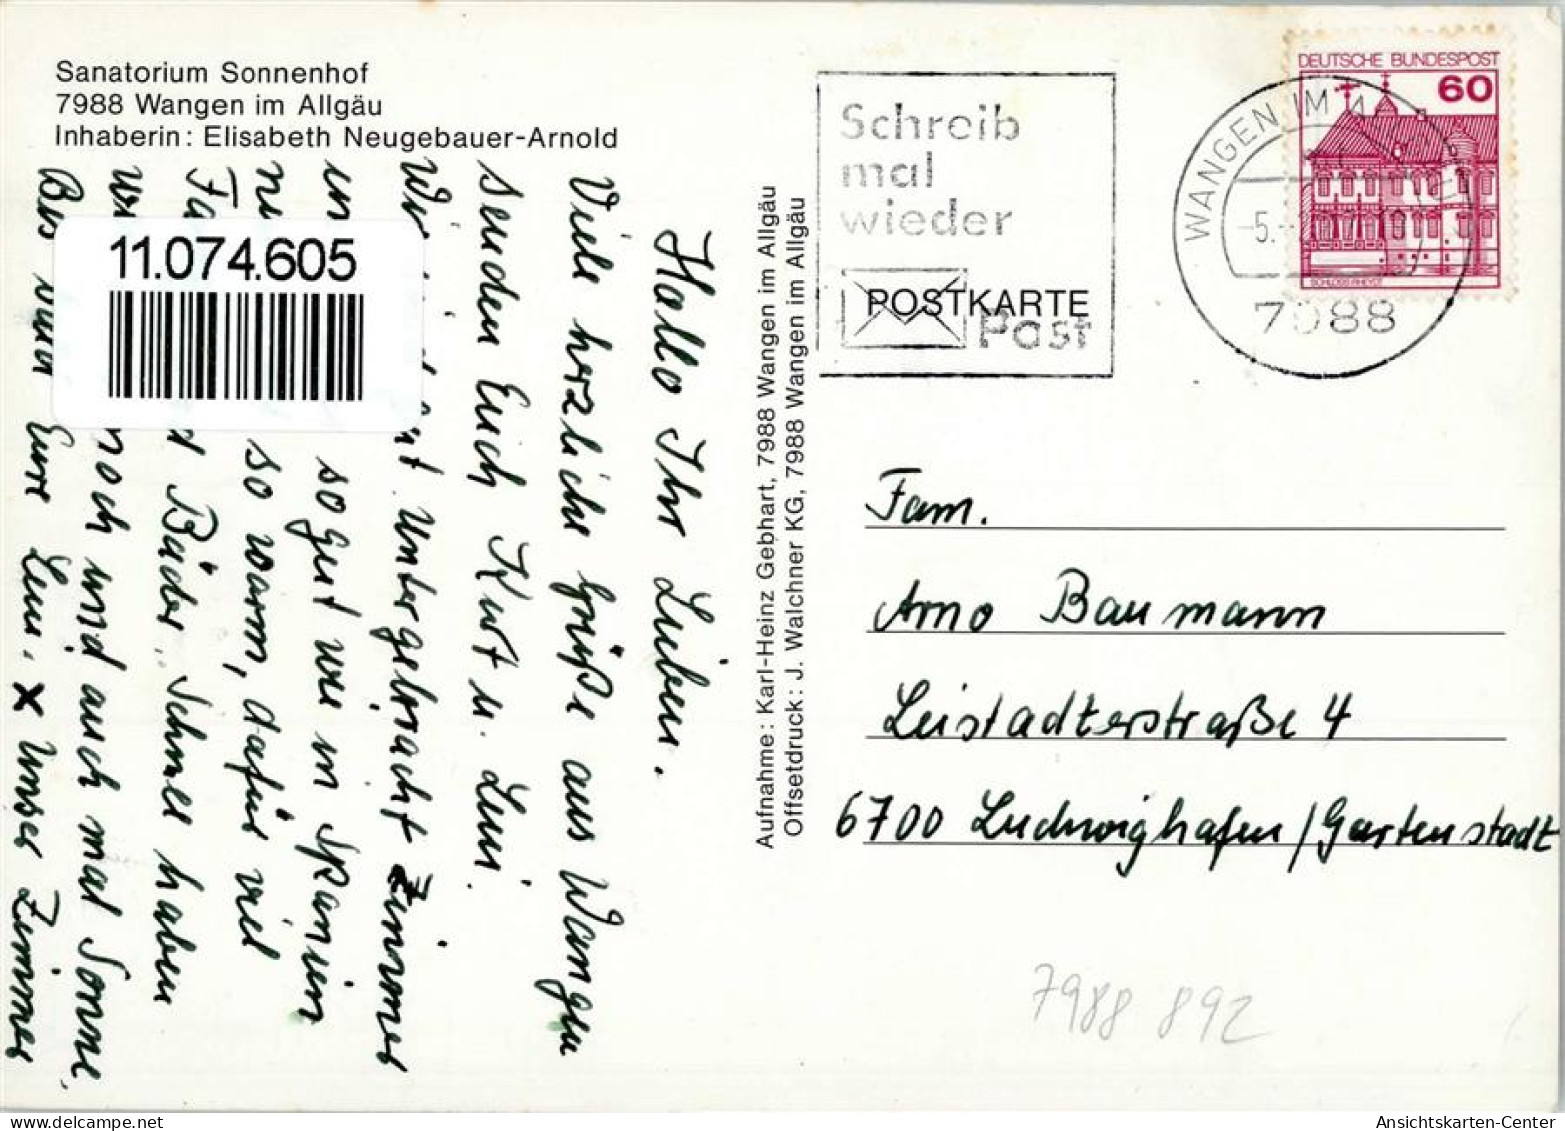 Sanatorium Sonnenhof
7988 Wangen im Allgäu
Inhaberin: Elisabeth Neugebauer-Arnold
11.074.605
Hallo Ihr Lieben.
Viele herzliche Grüße aus Wangen
senden Euch Kurt u. Leni.
Wir sind gut untergebracht Zimmer
so gut wie in Spanien
so warm, dafür viel
Bäder. Schnee haben
noch und auch mal Sonne.
Bis dann Eure Leni. x Unser Zimmer
Aufnahme: Karl-Heinz Gebhart, 7988 Wangen im Allgäu
Offsetdruck: J. Walchner KG, 7988 Wangen im Allgäu
Schreib
mal
wieder
POSTKARTE
Post
DEUTSCHE BUNDESPOST
60
SCHLOSS RHEYDT
WANGEN IM
-5.
7988
Fam.
Arno Baumann
Leistadterstraße 4
6700 Ludwighafen/Gartenstadt
7988 892
delcampe.net
Ansichtskarten-Center